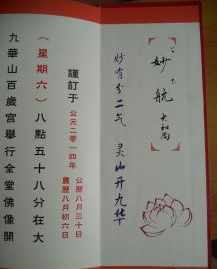 妙航大和
妙有分二气 灵山开九华
謹訂于
公元二零一四年
公曆八月三十日
農曆八月初六日
(星期六)八點五十八分在大
九華山百歲宮舉行全堂佛像開